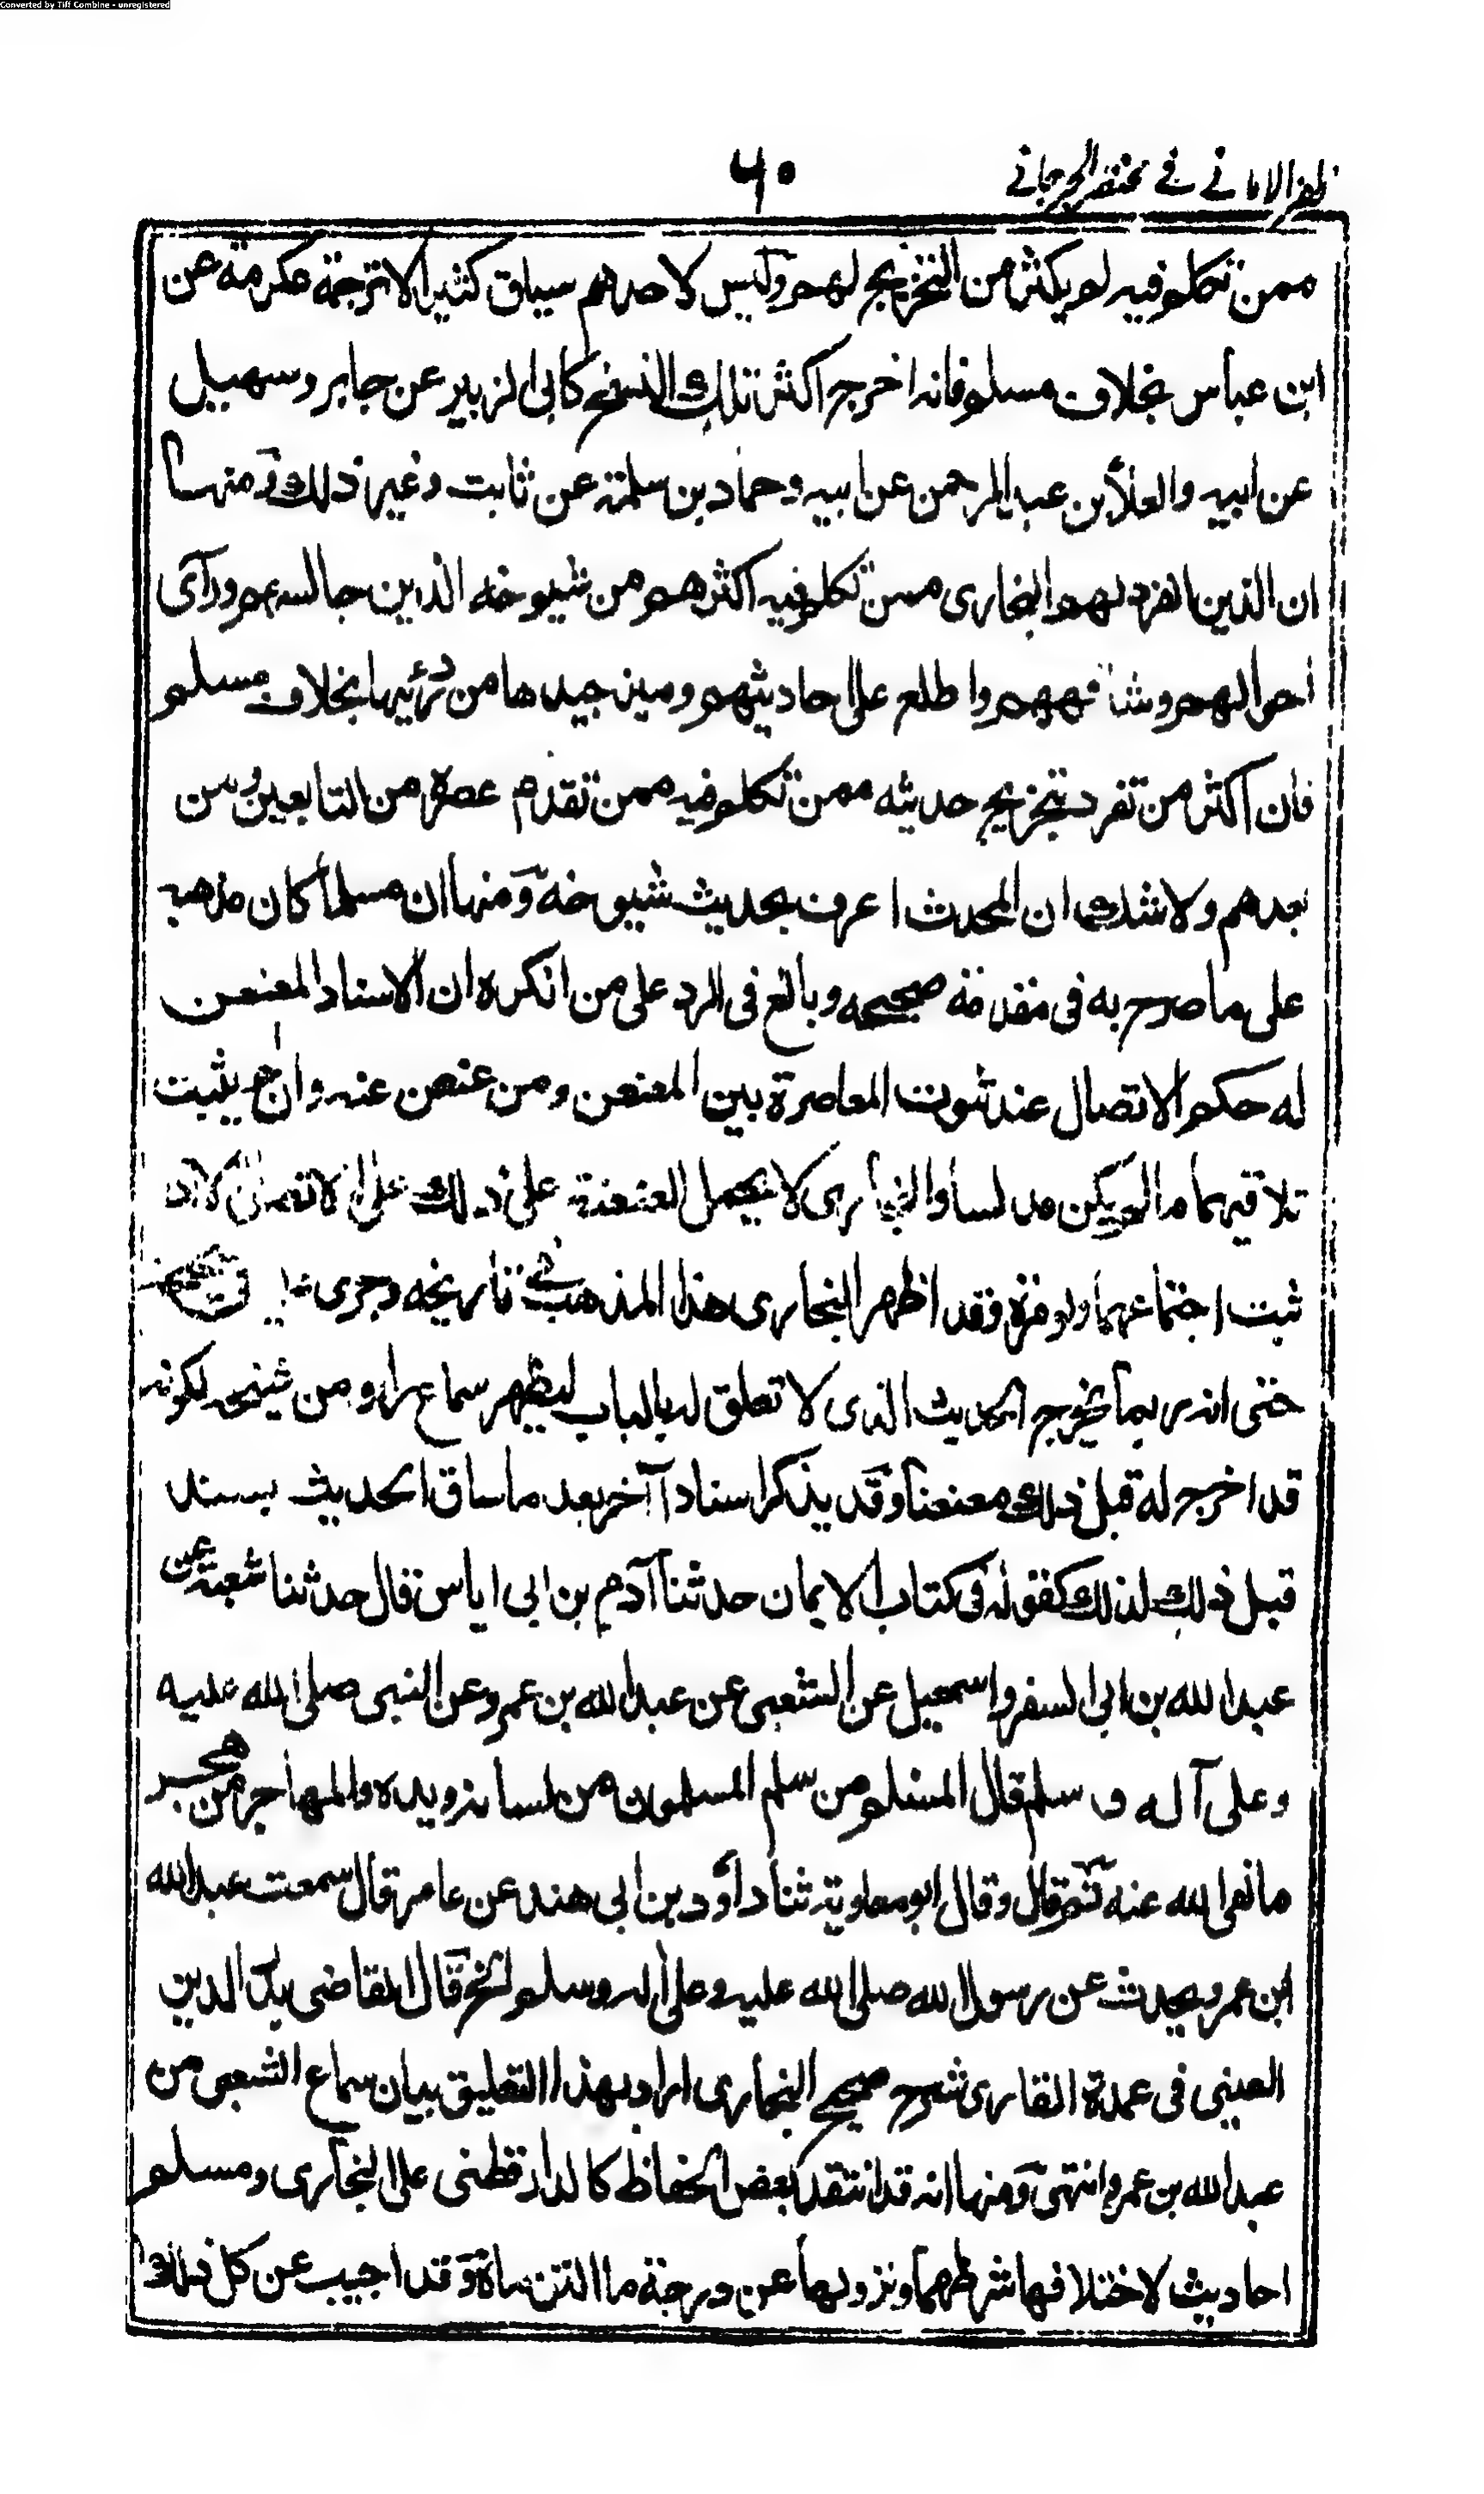 Converted by Tiff Combine - unregistered
ظفر الامانے فے مختصر الجرجانے
٦٠
ممن تكلم فيه لم يكثر من التخريج لهم وليس لاحدهم سياق كثير الا ترجمة عكرمة عن
ابن عباس بخلاف مسلم فانه اخرج اكثر تلك النسخ كابى الزبير عن جابر وسهيل
عن ابيه والعلاء بن عبد الرحمن عن ابيه وحماد بن سلمة عن ثابت وغير ذلك ومنها
ان الذين انفرد لهم البخارى ممن تكلم فيه اكثرهم من شيوخه الذين جالسهم ورآى
احوالهم وشافههم واطلع على احاديثهم وميز جيدها من رديها بخلاف مسلم
فان اكثر من تفرد بتخريج حديثه ممن تكلم فيه ممن تقدم عصره من التابعين ومن
بعدهم ولا شك ان المحدث اعرف بحديث شيوخه ومنها ان مسلما كان مذهبه
على ما صرح به فى مقدمة صحيحه وبالغ فى الرد على من انكره ان الاسناد المعنعن
له حكم الاتصال عند ثبوت المعاصرة بين المعنعن ومن عنعن عنه وان لم يثبت
تلاقيهما ما لم يكن مدلسا والبخارى لا يحمل العنعنة على ذلك على الاتصال الا اذا
ثبت اجتماعهما ولو مرة وقد اظهر البخارى هذا المذهب فى تاريخه وجرى عليه فى صحيحه
حتى انه ربما يخرج الحديث الذى لا تعلق له بالباب ليظهر سماع راو من شيخه لكونه
قد اخرج له قبل ذلك معنعنا وقد يذكر اسنادا آخر بعد ما ساق الحديث بسند
قبل ذلك لذلك كقوله فى كتاب الايمان حدثنا آدم بن ابى اياس قال حدثنا شعبة عن
عبد الله بن ابى السفر واسمعيل عن الشعبى عن عبد الله بن عمرو عن النبى صلى الله عليه
وعلى آله وسلم قال المسلم من سلم المسلمون من لسانه ويده والمهاجر من هجر
ما نهى الله عنه ثم قال وقال ابو معاوية ثنا داود بن ابى هند عن عامر قال سمعت عبد الله
ابن عمرو يحدث عن رسول الله صلى الله عليه وعلى آله وسلم الخ قال القاضى بدر الدين
العينى فى عمدة القارى شرح صحيح البخارى اراد بهذا التعليق بيان سماع الشعبى من
عبد الله بن عمرو انتهى ومنها انه قد انتقد بعض الحفاظ كالدارقطنى على البخارى ومسلم
احاديث لاختلافها شرطهما ونزولها عن درجة ما التزماه وقد اجيب عن كل ذلك